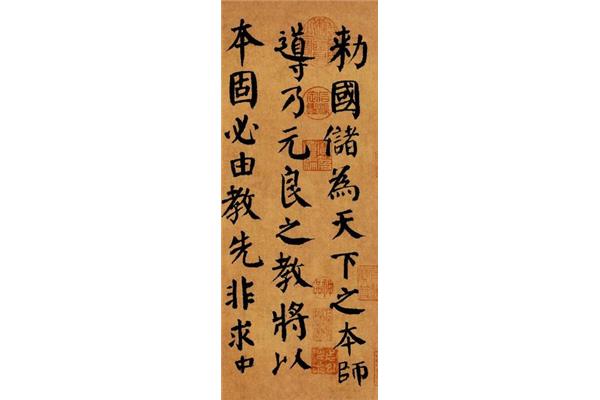 勅國儲為天下之本師
導乃元良之教將以
本固必由教先非求中